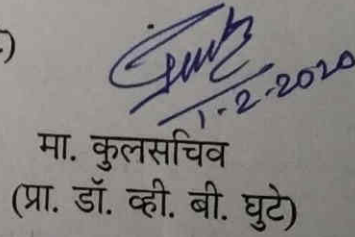 1-2-2020
मा. कुलसचिव
(प्रा. डॉ. व्ही. बी. घुटे)